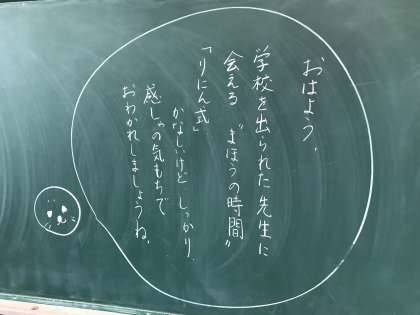 おはよう。
学校を出られた先生に
会える〝まほうの時間〟
「りにん式」
かなしいけど しっかり
感しゃの気もちで
おわかれしましょうね。